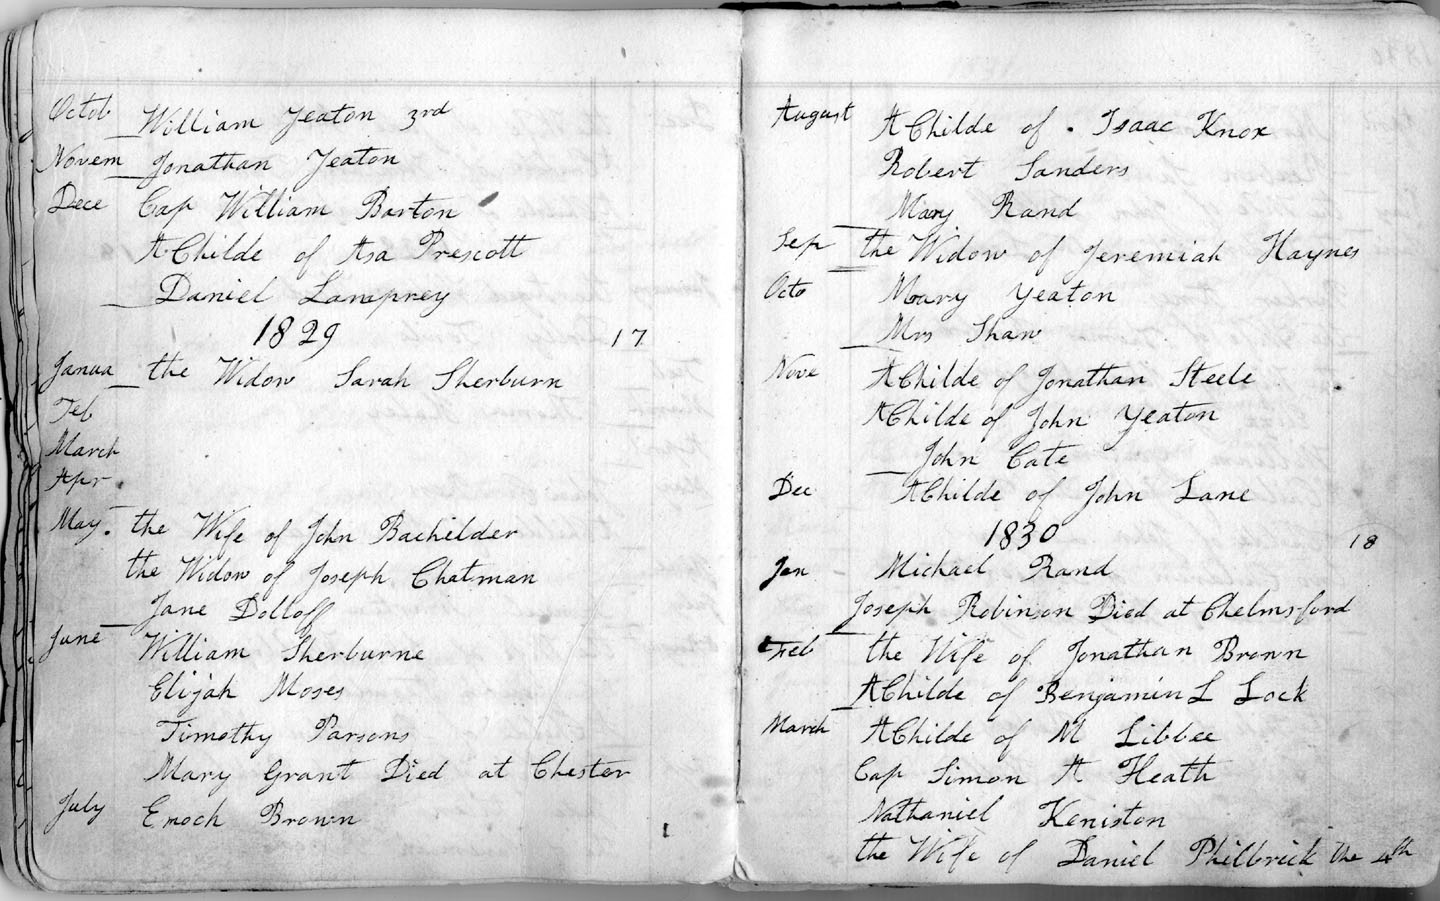 Octob William Yeaton 3rd
Novem Jonathan Yeaton
Dece Cap William Barton
A Childe of Asa Prescott
Daniel Lamprey
1829 17
Janua the Widow Sarah Sherburn
Feb
March
Apr
May. the Wife of John Bachelder
the Widow of Joseph Chatman
Jane Dolloff
June William Sherburne
Elijah Moses
Timothy Parsons
Mary Grant Died at Chester
July Enoch Brown
August A Childe of Isaac Knox
Robert Sanders
Mary Rand
Sep the Widow of Jeremiah Haynes
Octo Mary Yeaton
Mrs Shaw
Nove A Childe of Jonathan Steele
A Childe of John Yeaton
John Cate
Dec A Childe of John Lane
1830 18
Jan Michael Rand
Joseph Robinson Died at Chelmsford
Feb the Wife of Jonathan Brown
A Childe of Benjamin L Lock
March A Childe of M Libbee
Cap Simon A Heath
Nathaniel Keniston
the Wife of Daniel Philbrick the 4th